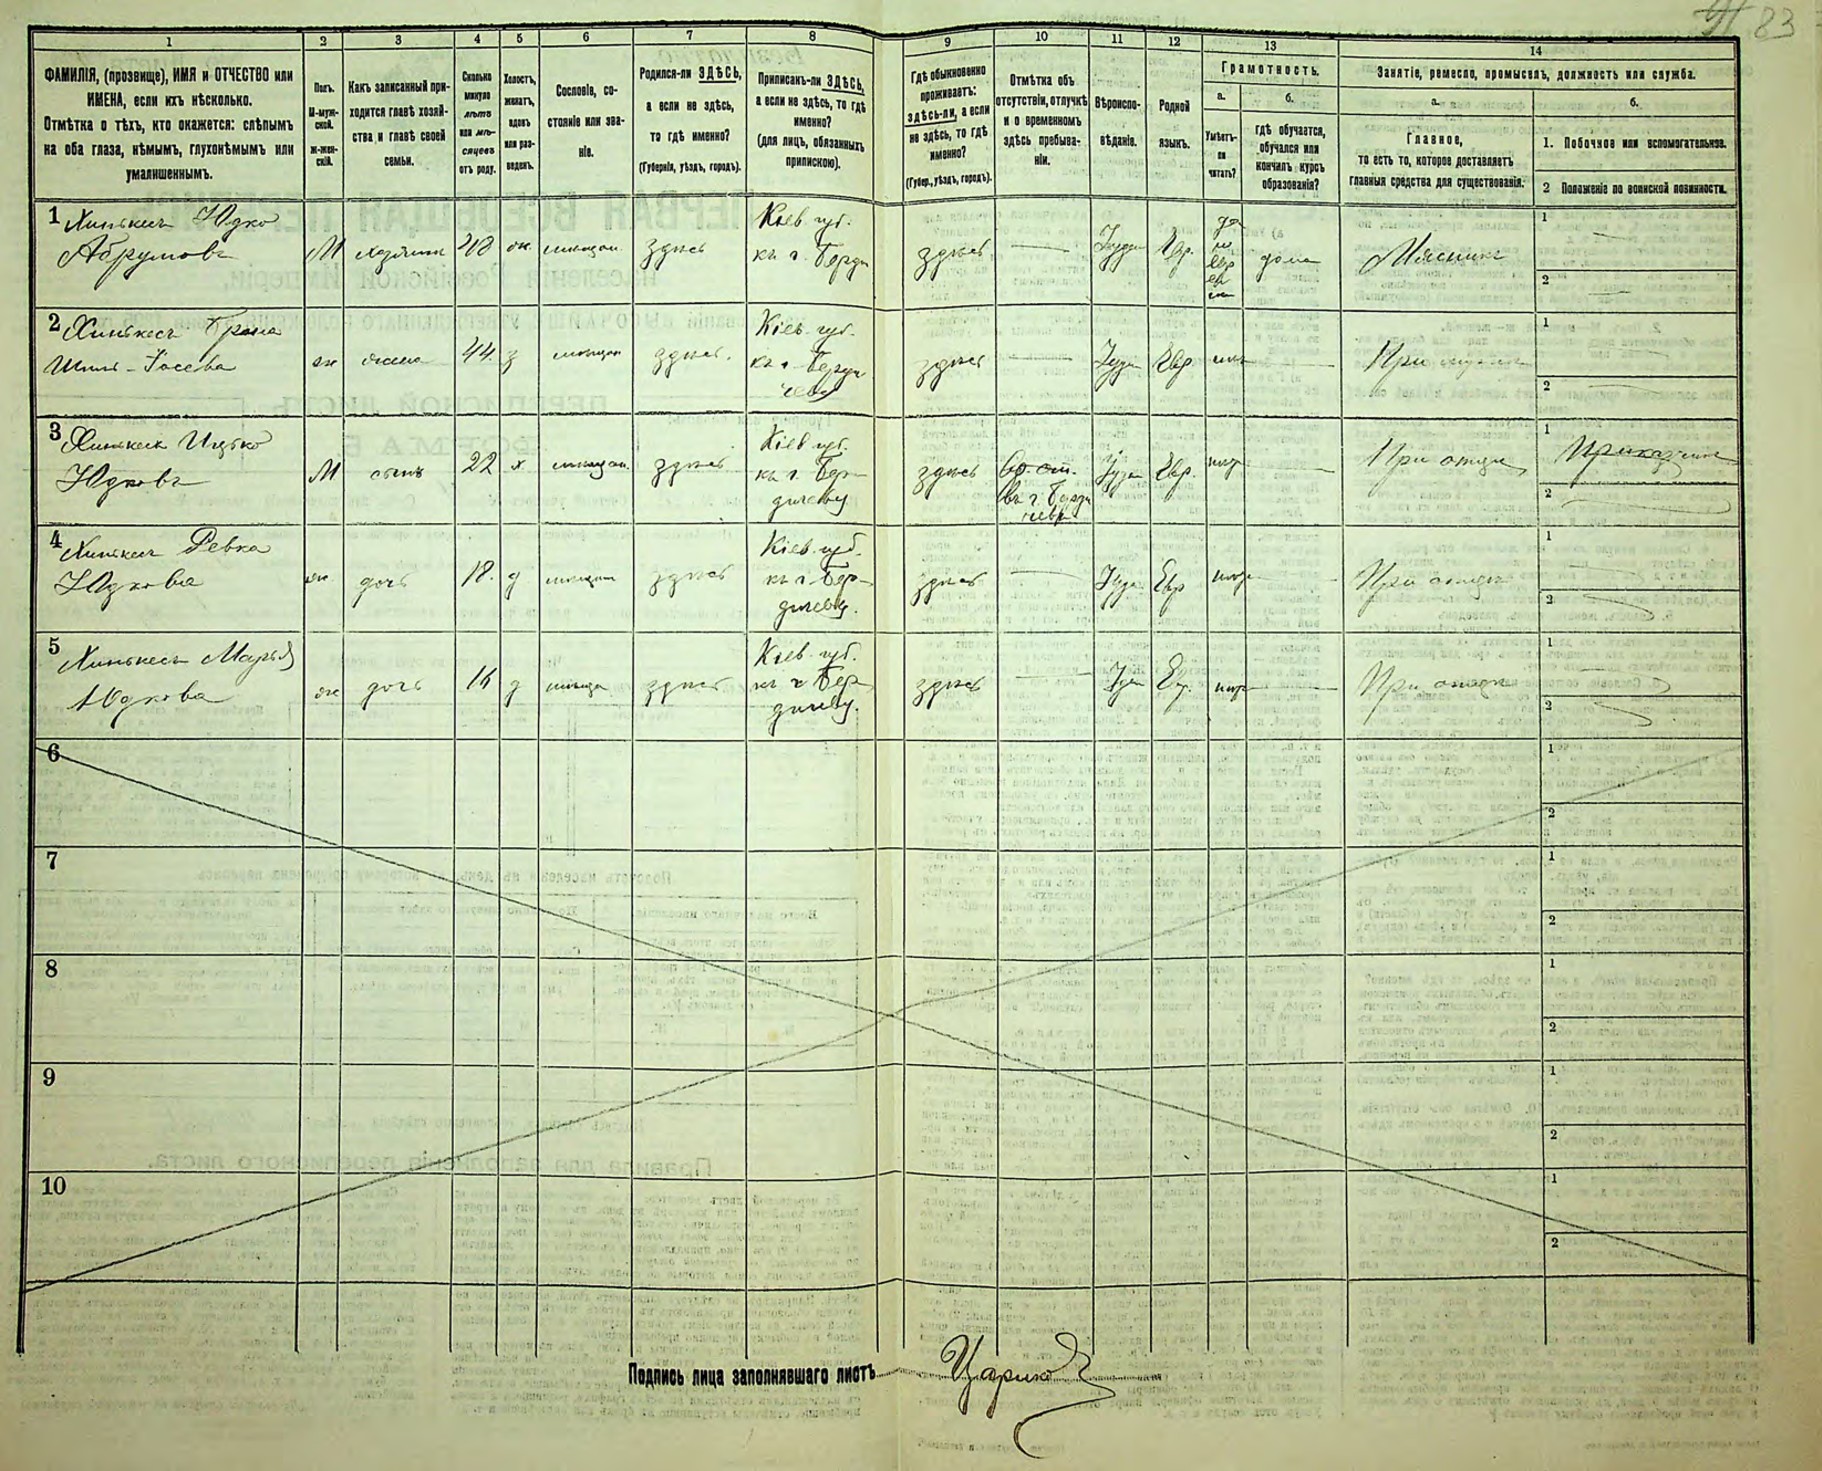 83
1
2
3
4
5
6
7
8
9
10
11
12
13
14
ФАМИЛІЯ, (прозвище), ИМЯ и ОТЧЕСТВО или
ИМЕНА, если ихъ нѣсколько.
Отмѣтка о тѣхъ, кто окажется: слѣпымъ
на оба глаза, нѣмымъ, глухонѣмымъ или
умалишеннымъ.
Полъ.
М-муж-
ской.
ж-жен-
скій.
Какъ записанный при-
ходится главѣ хозяй-
ства и главѣ своей
семьи.
Сколько
минуло
лѣтъ
или мѣ-
сяцевъ
отъ роду.
Холостъ,
женатъ,
вдовъ
или раз-
веденъ.
Сословіе, со-
стояніе или зва-
ніе.
Родился-ли ЗДѢСЬ,
а если не здѣсь,
то гдѣ именно?
(Губернія, уѣздъ, городъ).
Приписанъ-ли ЗДѢСЬ,
а если не здѣсь, то гдѣ
именно?
(для лицъ, обязанныхъ
припискою).
Гдѣ обыкновенно
проживаетъ:
здѣсь-ли, а если
не здѣсь, то гдѣ
именно?
(Губер., уѣздъ, городъ).
Отмѣтка объ
отсутствіи, отлучкѣ
и о временномъ
здѣсь пребыва-
ніи.
Вѣроиспо-
вѣданіе.
Родной
языкъ.
Грамотность.
а.
б.
Умѣетъ-
ли
читать?
гдѣ обучается,
обучался или
кончилъ курсъ
образованія?
Занятіе, ремесло, промыселъ, должность или служба.
а.
б.
Главное,
то есть то, которое доставляетъ
главныя средства для существованія.
1. Побочное или вспомогательное.
2 Положеніе по воинской повинности.
1 Хинькесъ Юдко
Абрумовъ
М хозяинъ 48 жн. мѣщан здѣсь
Кіев. губ.
къ г. Берди
здѣсь Іуде Евр.
да
дома Мясникъ
1
2
2 Хинькесъ
жена 44. з мѣщан здѣсь.
Кіев. губ.
къ г. Берди
чеву
здѣсь Іуде Евр. При мужѣ
1
2
3 Хинькесъ Ицько
Юдковъ
М сынъ 22 х мѣщан. здѣсь
Кіев. губ.
къ г. Бер-
дичеву
здѣсь
Во от.
въ г. Берди
чевѣ
Іуде Евр. При отцѣ Приказчикъ
1
2
4 Хинькесъ Ревка
Юдкова
ж дочь 18. д мѣщан здѣсь
Кіев. губ.
къ г. Бер-
дичеву.
здѣсь Іуде Евр При отцѣ
1
2
5 Хинькесъ Марья
Юдкова
ж дочь 16 д мѣщан здѣсь
Кіев. губ.
къ г. Бер
дичеву.
здѣсь Іуде Евр. При отцѣ
1
2
6
1
2
7
1
2
8
1
2
9
1
2
10
1
2
Подпись лица заполнявшаго листъ